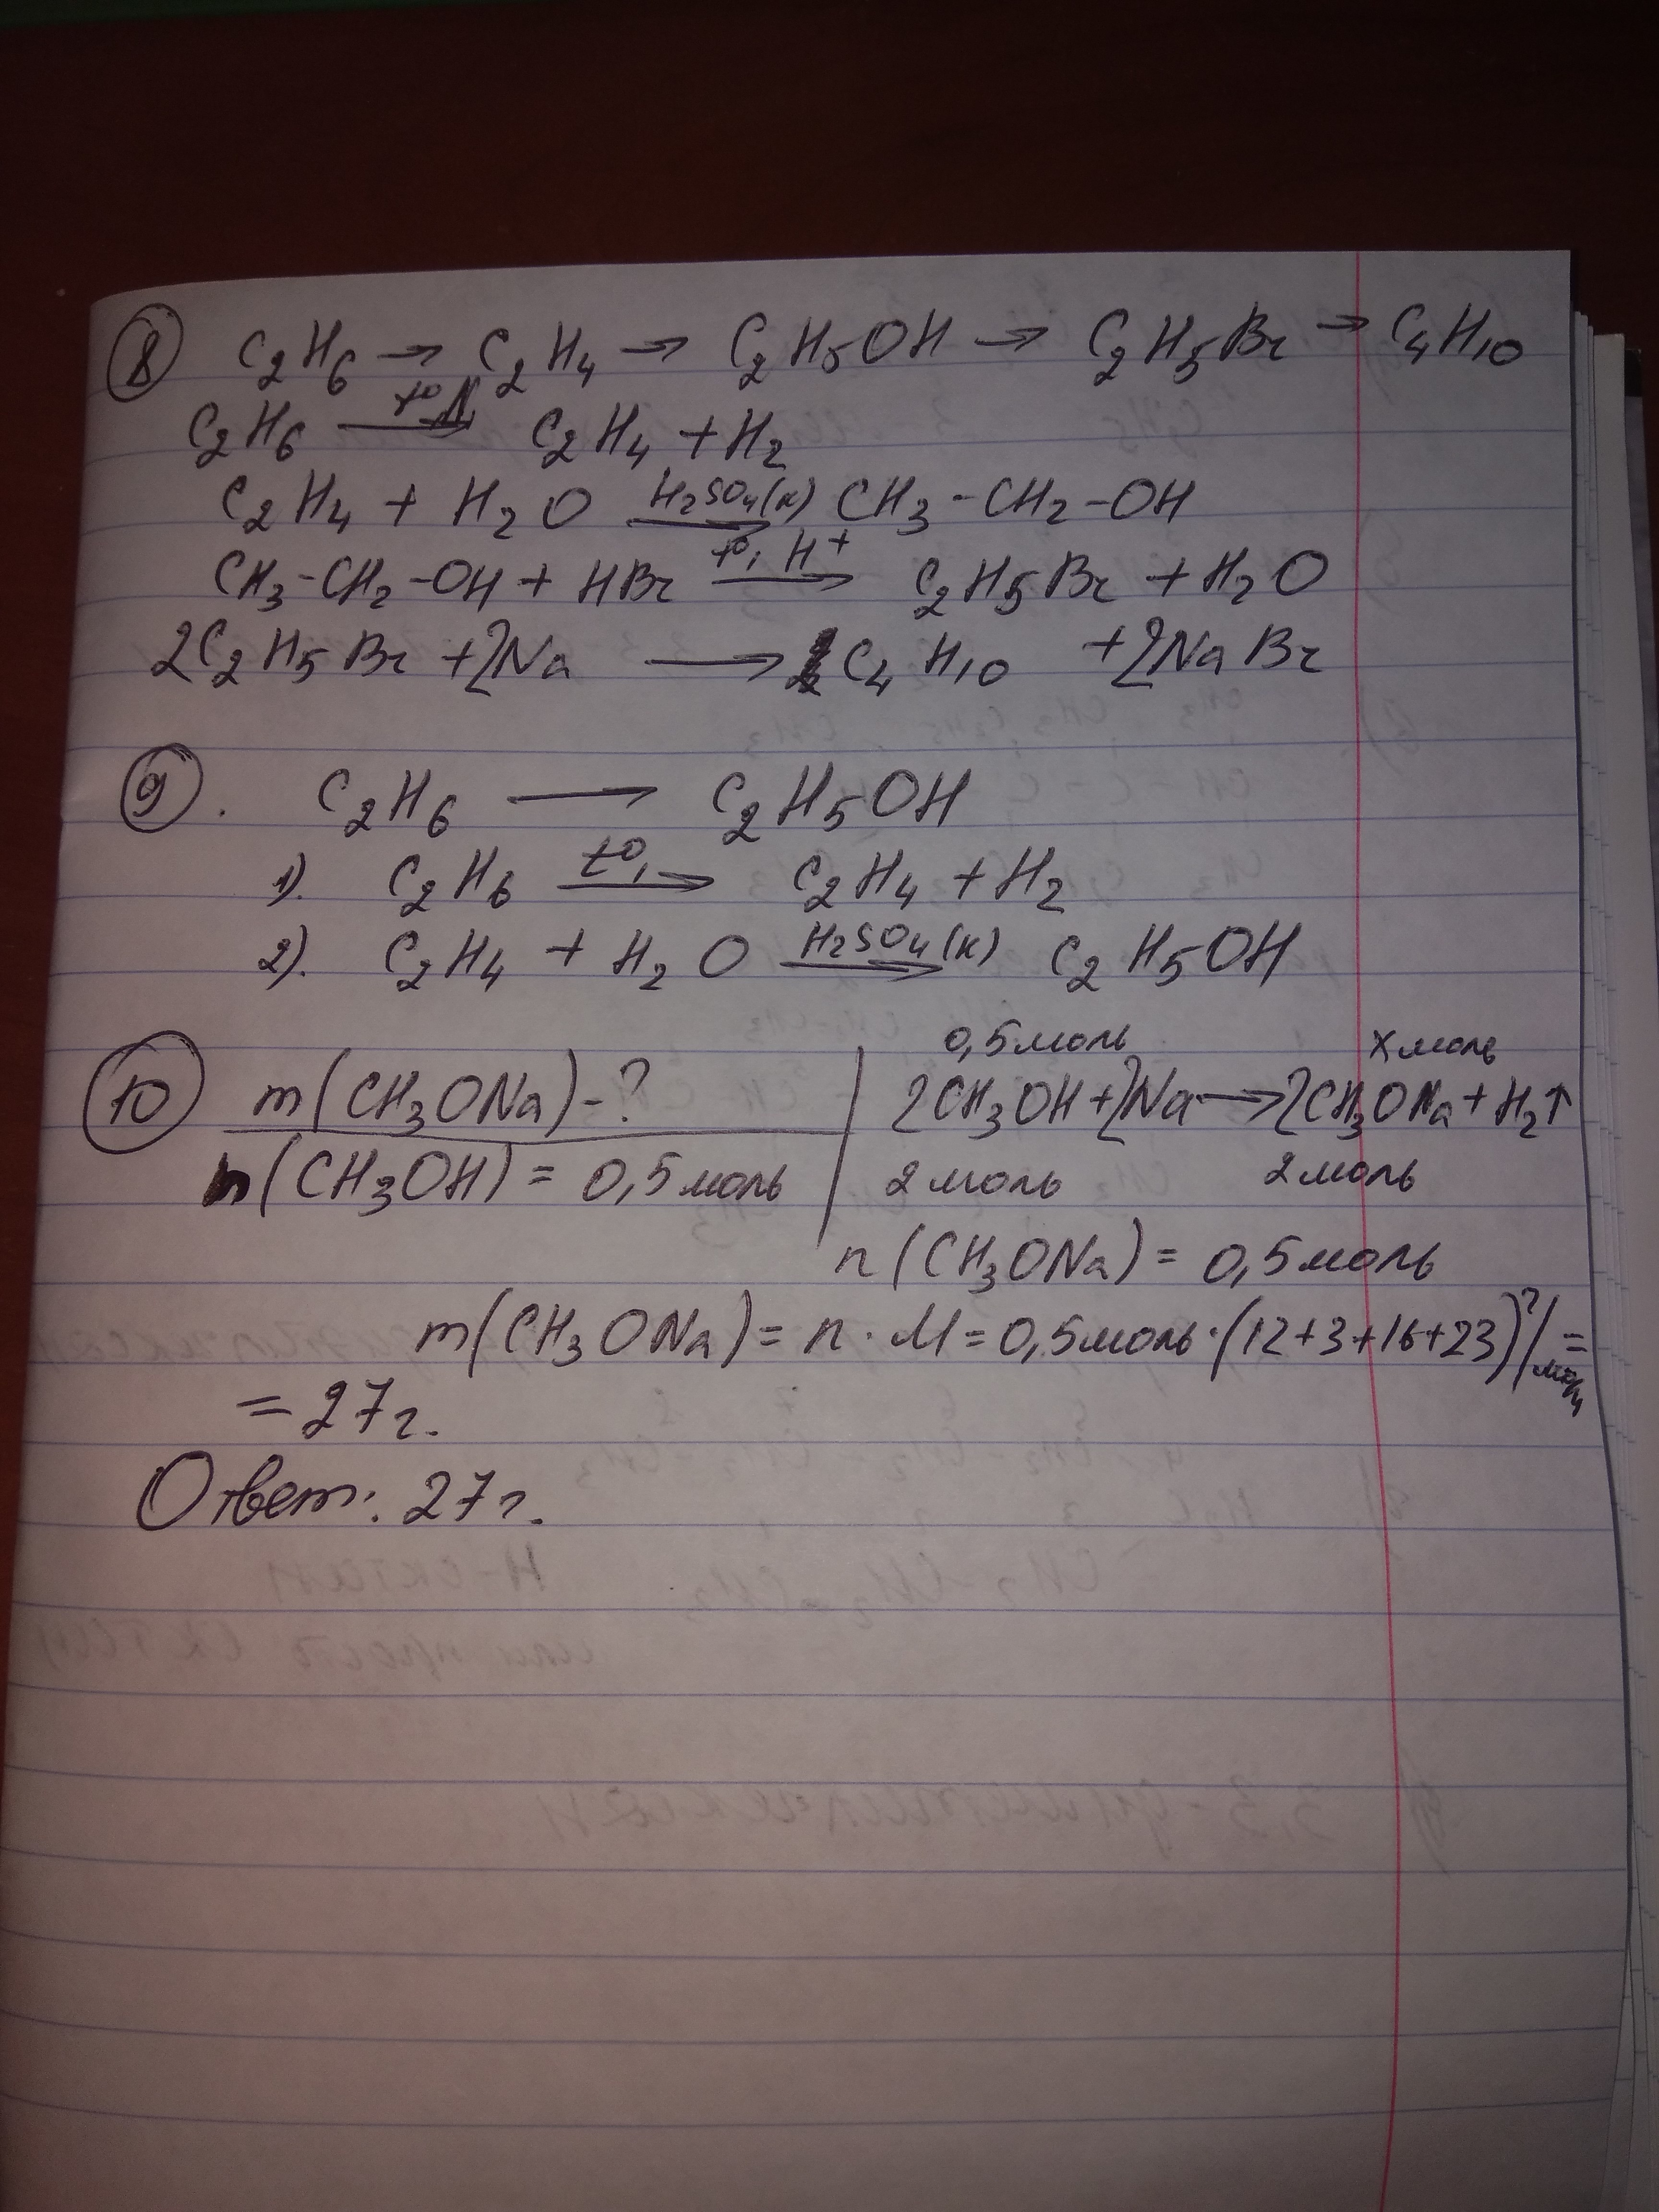 8 C2H6 → C2H4 → C2H5OH → C2H5Br → C4H10
C2H6 —t°→ C2H4 + H2
C2H4 + H2O —H2SO4(к)→ CH3-CH2-OH
CH3-CH2-OH + HBr —t°, H+→ C2H5Br + H2O
2C2H5Br + 2Na → C4H10 + 2NaBr
9. C2H6 → C2H5OH
1). C2H6 —t°,→ C2H4 + H2
2). C2H4 + H2O —H2SO4(к)→ C2H5OH
0,5моль x моль
10 m(CH3ONa)-? 2CH3OH+2Na→2CH3ONa+H2↑
n(CH3OH) = 0,5моль 2 моль 2 моль
n(CH3ONa) = 0,5моль
m(CH3ONa) = n · M = 0,5моль·(12+3+16+23)г/моль =
= 27г.
Ответ: 27г.